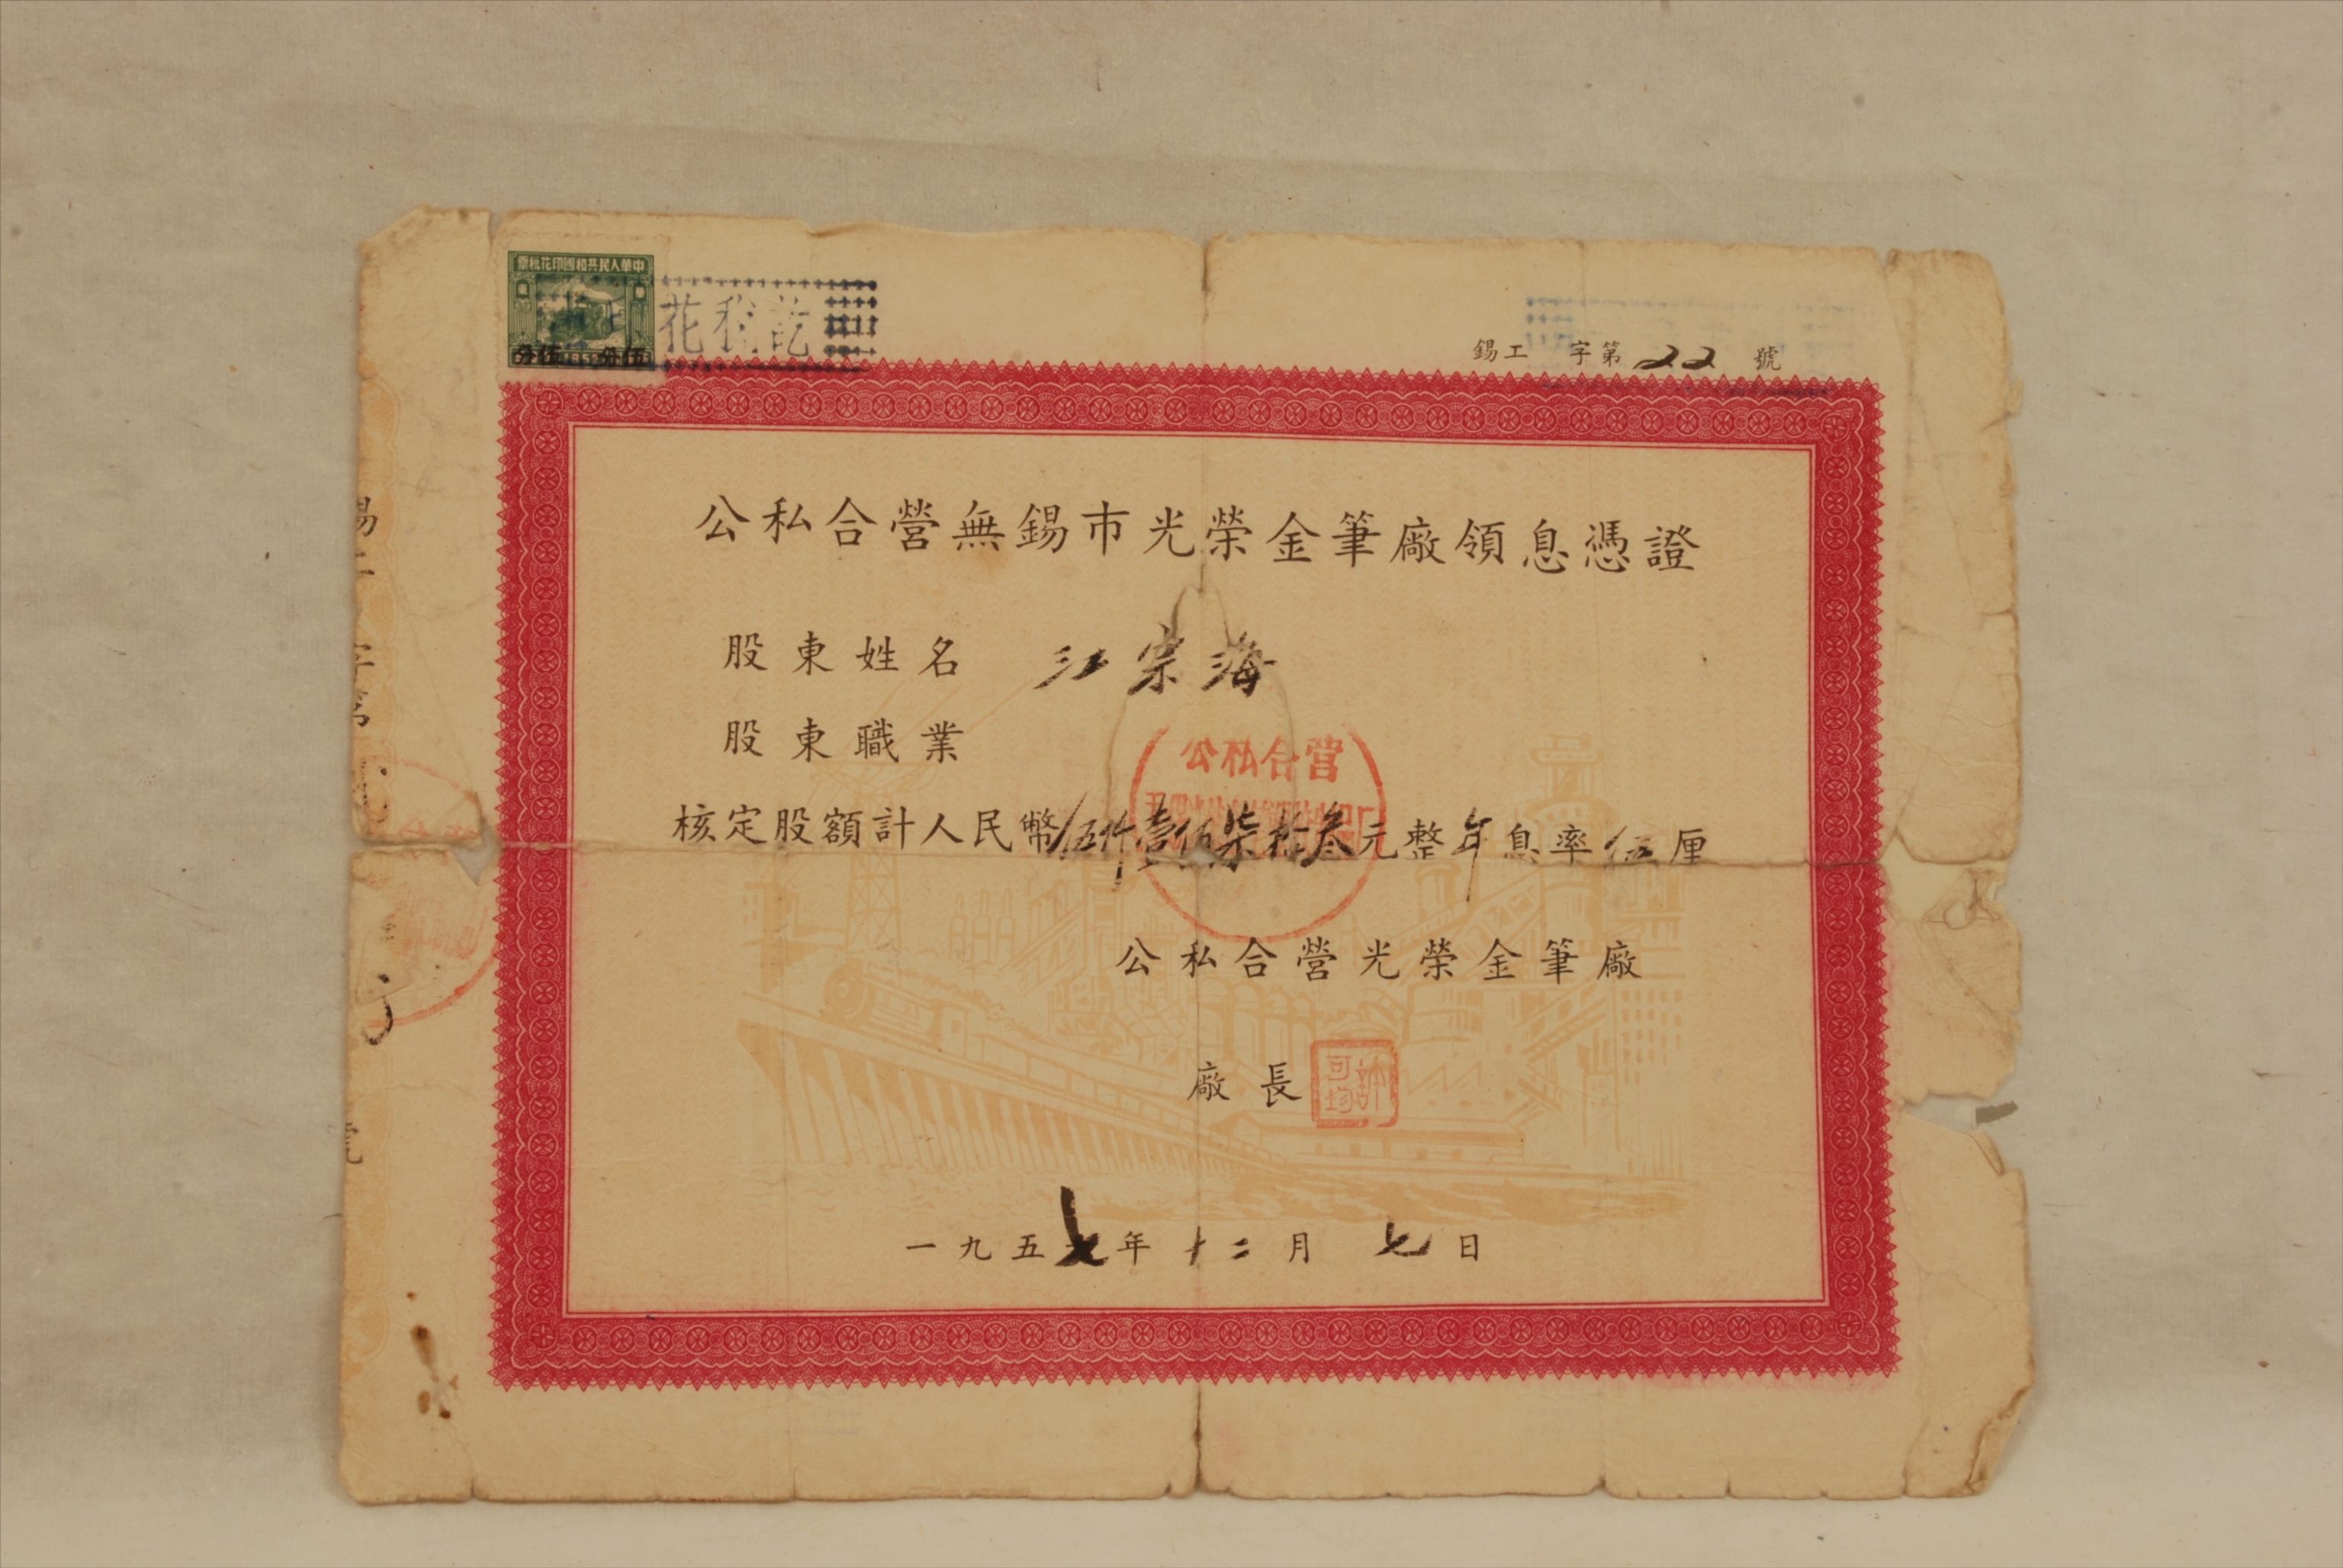 中華人民共和國印花稅票
伍分 伍分
花稅訖
錫工 字第22號
公私合營無錫市光榮金筆廠領息憑證
股東姓名 江宗海
股東職業
公私合營
核定股額計人民幣伍仟壹佰柒拾叁元整年息率伍厘
公私合營光榮金筆廠
廠長
許可均
一九五七年十二月七日